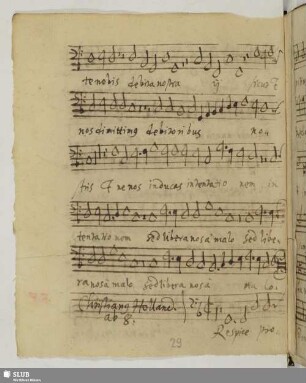 te nobis debita nostra ij sicut et
nos dimittimg debitoribus nos
tris Et ne nos inducas in tentatio nem in
tentatio nem sed libera nos a malo sed libe
ra nos a malo sed libera nos a ma lo.
Christiang Holland.
ab 8.
Respice Pro.
29
SLUB
Wir führen Wissen.